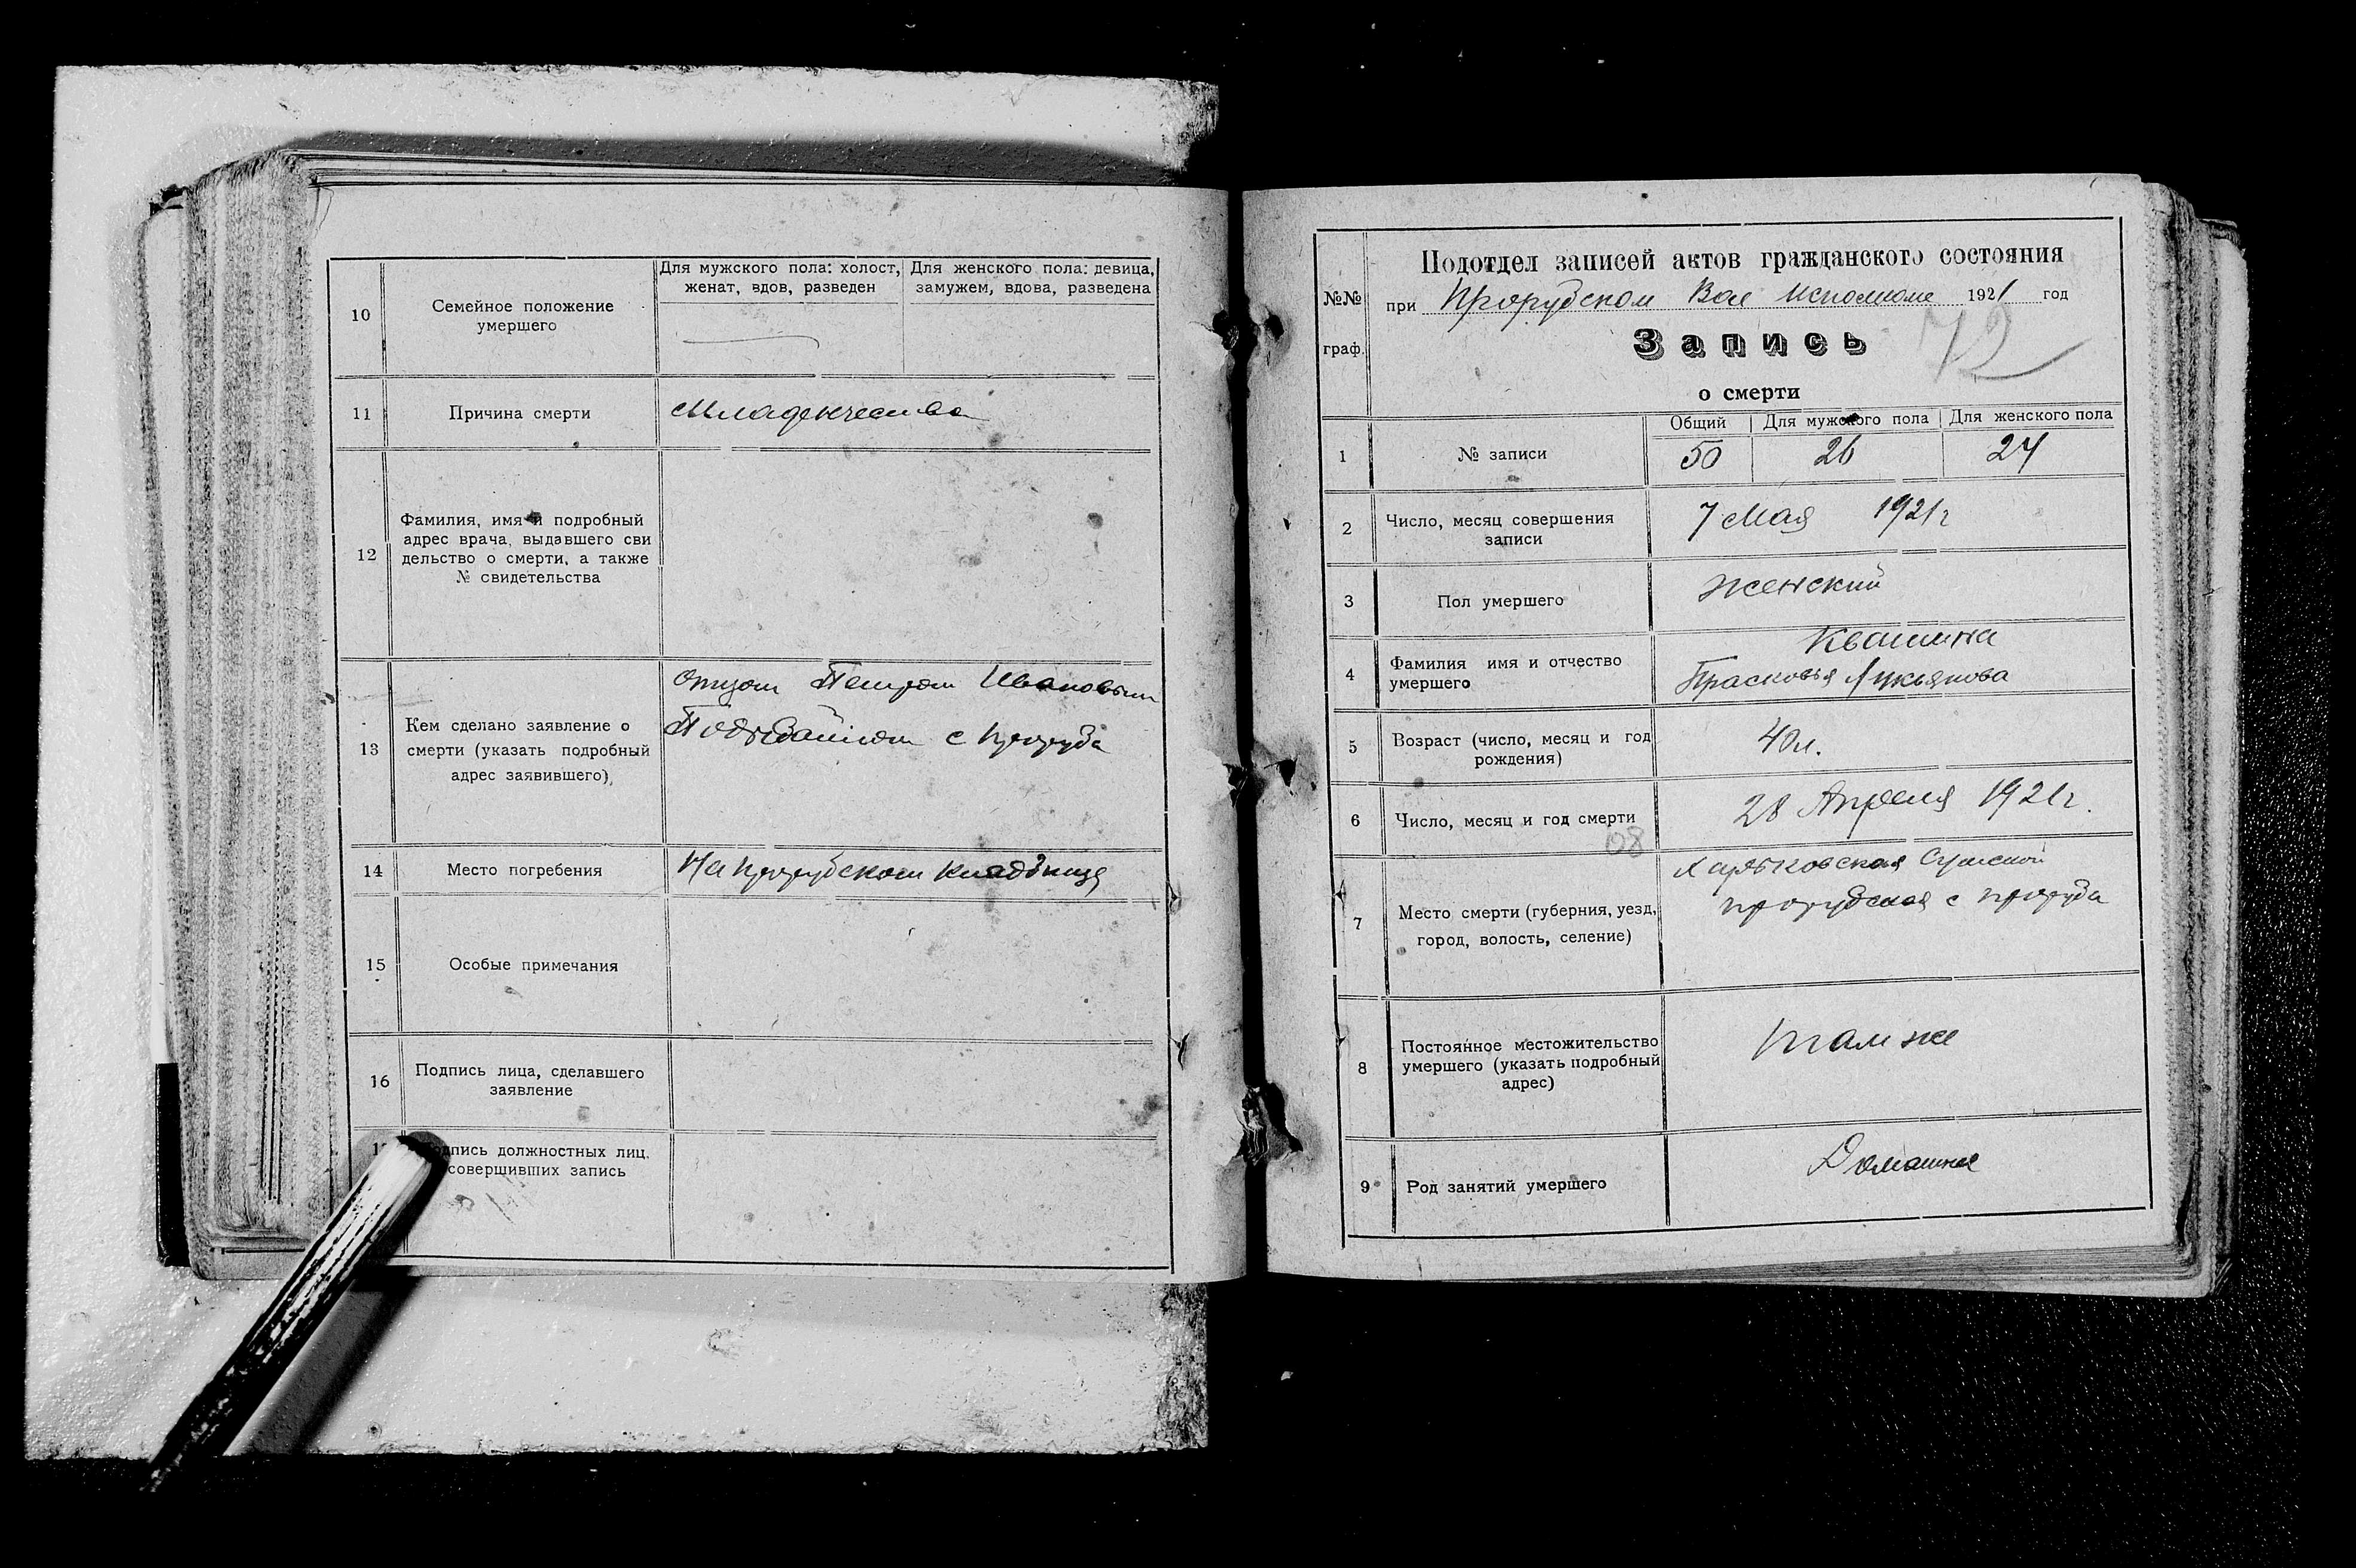 10
Семейное положение
умершего
Для мужского пола: холост,
женат, вдов, разведен
Для женского пола: девица,
замужем, вдова, разведена
11
Причина смерти
Младенчества
12
Фамилия, имя и подробный
адрес врача, выдавшего сви
дельство о смерти, а также
№ свидетельства
13
Кем сделано заявление о
смерти (указать подробный
адрес заявившего)
Отцом Петром Ивановым
с Проруба
14
Место погребения
На Прорубском кладбище
15
Особые примечания
16
Подпись лица, сделавшего
заявление
одпись должностных лиц,
совершивших запись
№№
граф.
Подотдел записей актов гражданского состояния
при Прорубском Вол Исполкоме 1921 год
Запись
72
о смерти
1
№ записи
Общий
Для мужского пола
Для женского пола
50
26
24
2
Число, месяц совершения
записи
7 Мая 1921 г
3
Пол умершего
Женский
4
Фамилия имя и отчество
умершего
Квашина
Прасковья Лукьянова
5
Возраст (число, месяц и год
рождения)
40 л.
6
Число, месяц и год смерти
28 Апреля 1921 г.
08
7
Место смерти (губерния, уезд,
город, волость, селение)
Харьковская Сумской
Прорубская с Проруба
8
Постоянное местожительство
умершего (указать подробный
адрес)
там же
9
Род занятий умершего
Домашнее